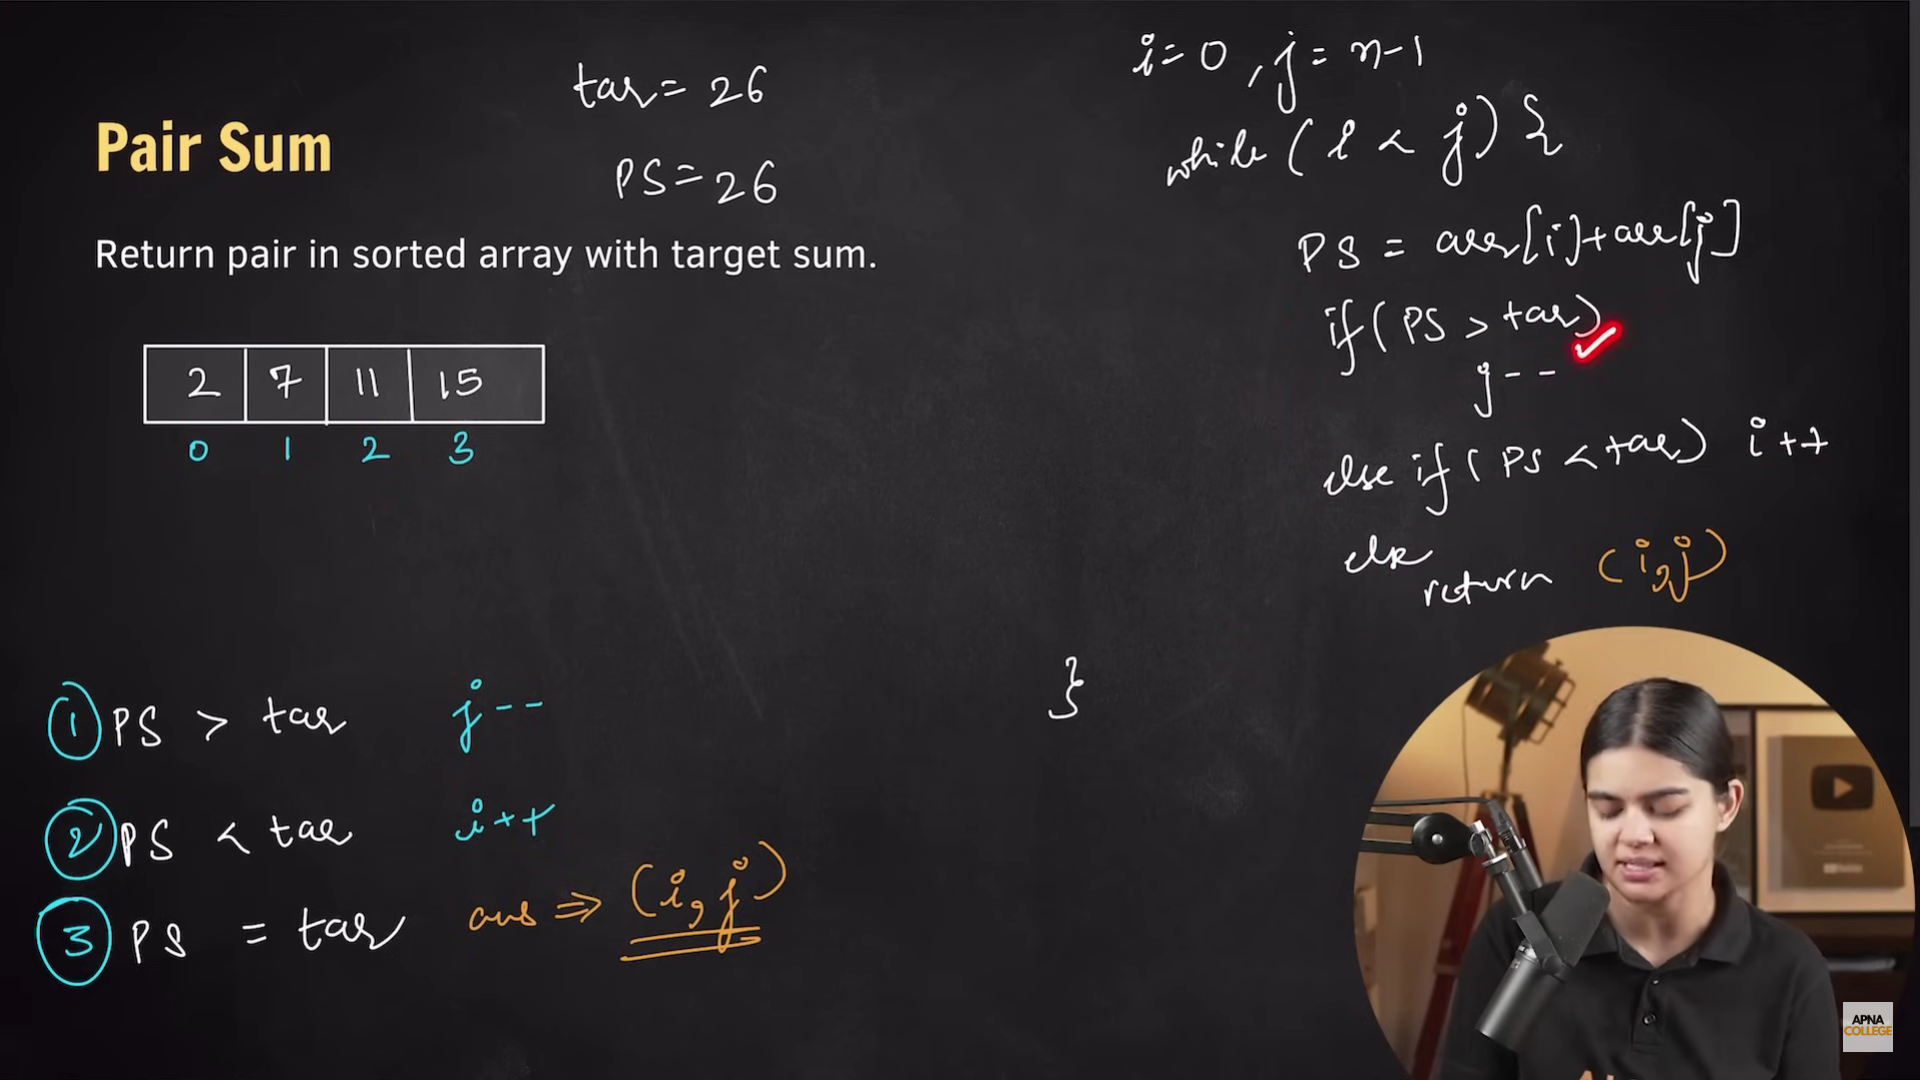 tar = 26
Pair Sum
PS = 26
Return pair in sorted array with target sum.
2 7 11 15
0 1 2 3
① PS > tar j--
② PS < tar i++
③ PS = tar ans ⇒ (i,j)
i=0, j= n-1
while (i < j) {
PS = arr[i]+arr[j]
if (PS > tar)
j--
else if (PS < tar) i++
else
return (i,j)
}
APNA
COLLEGE